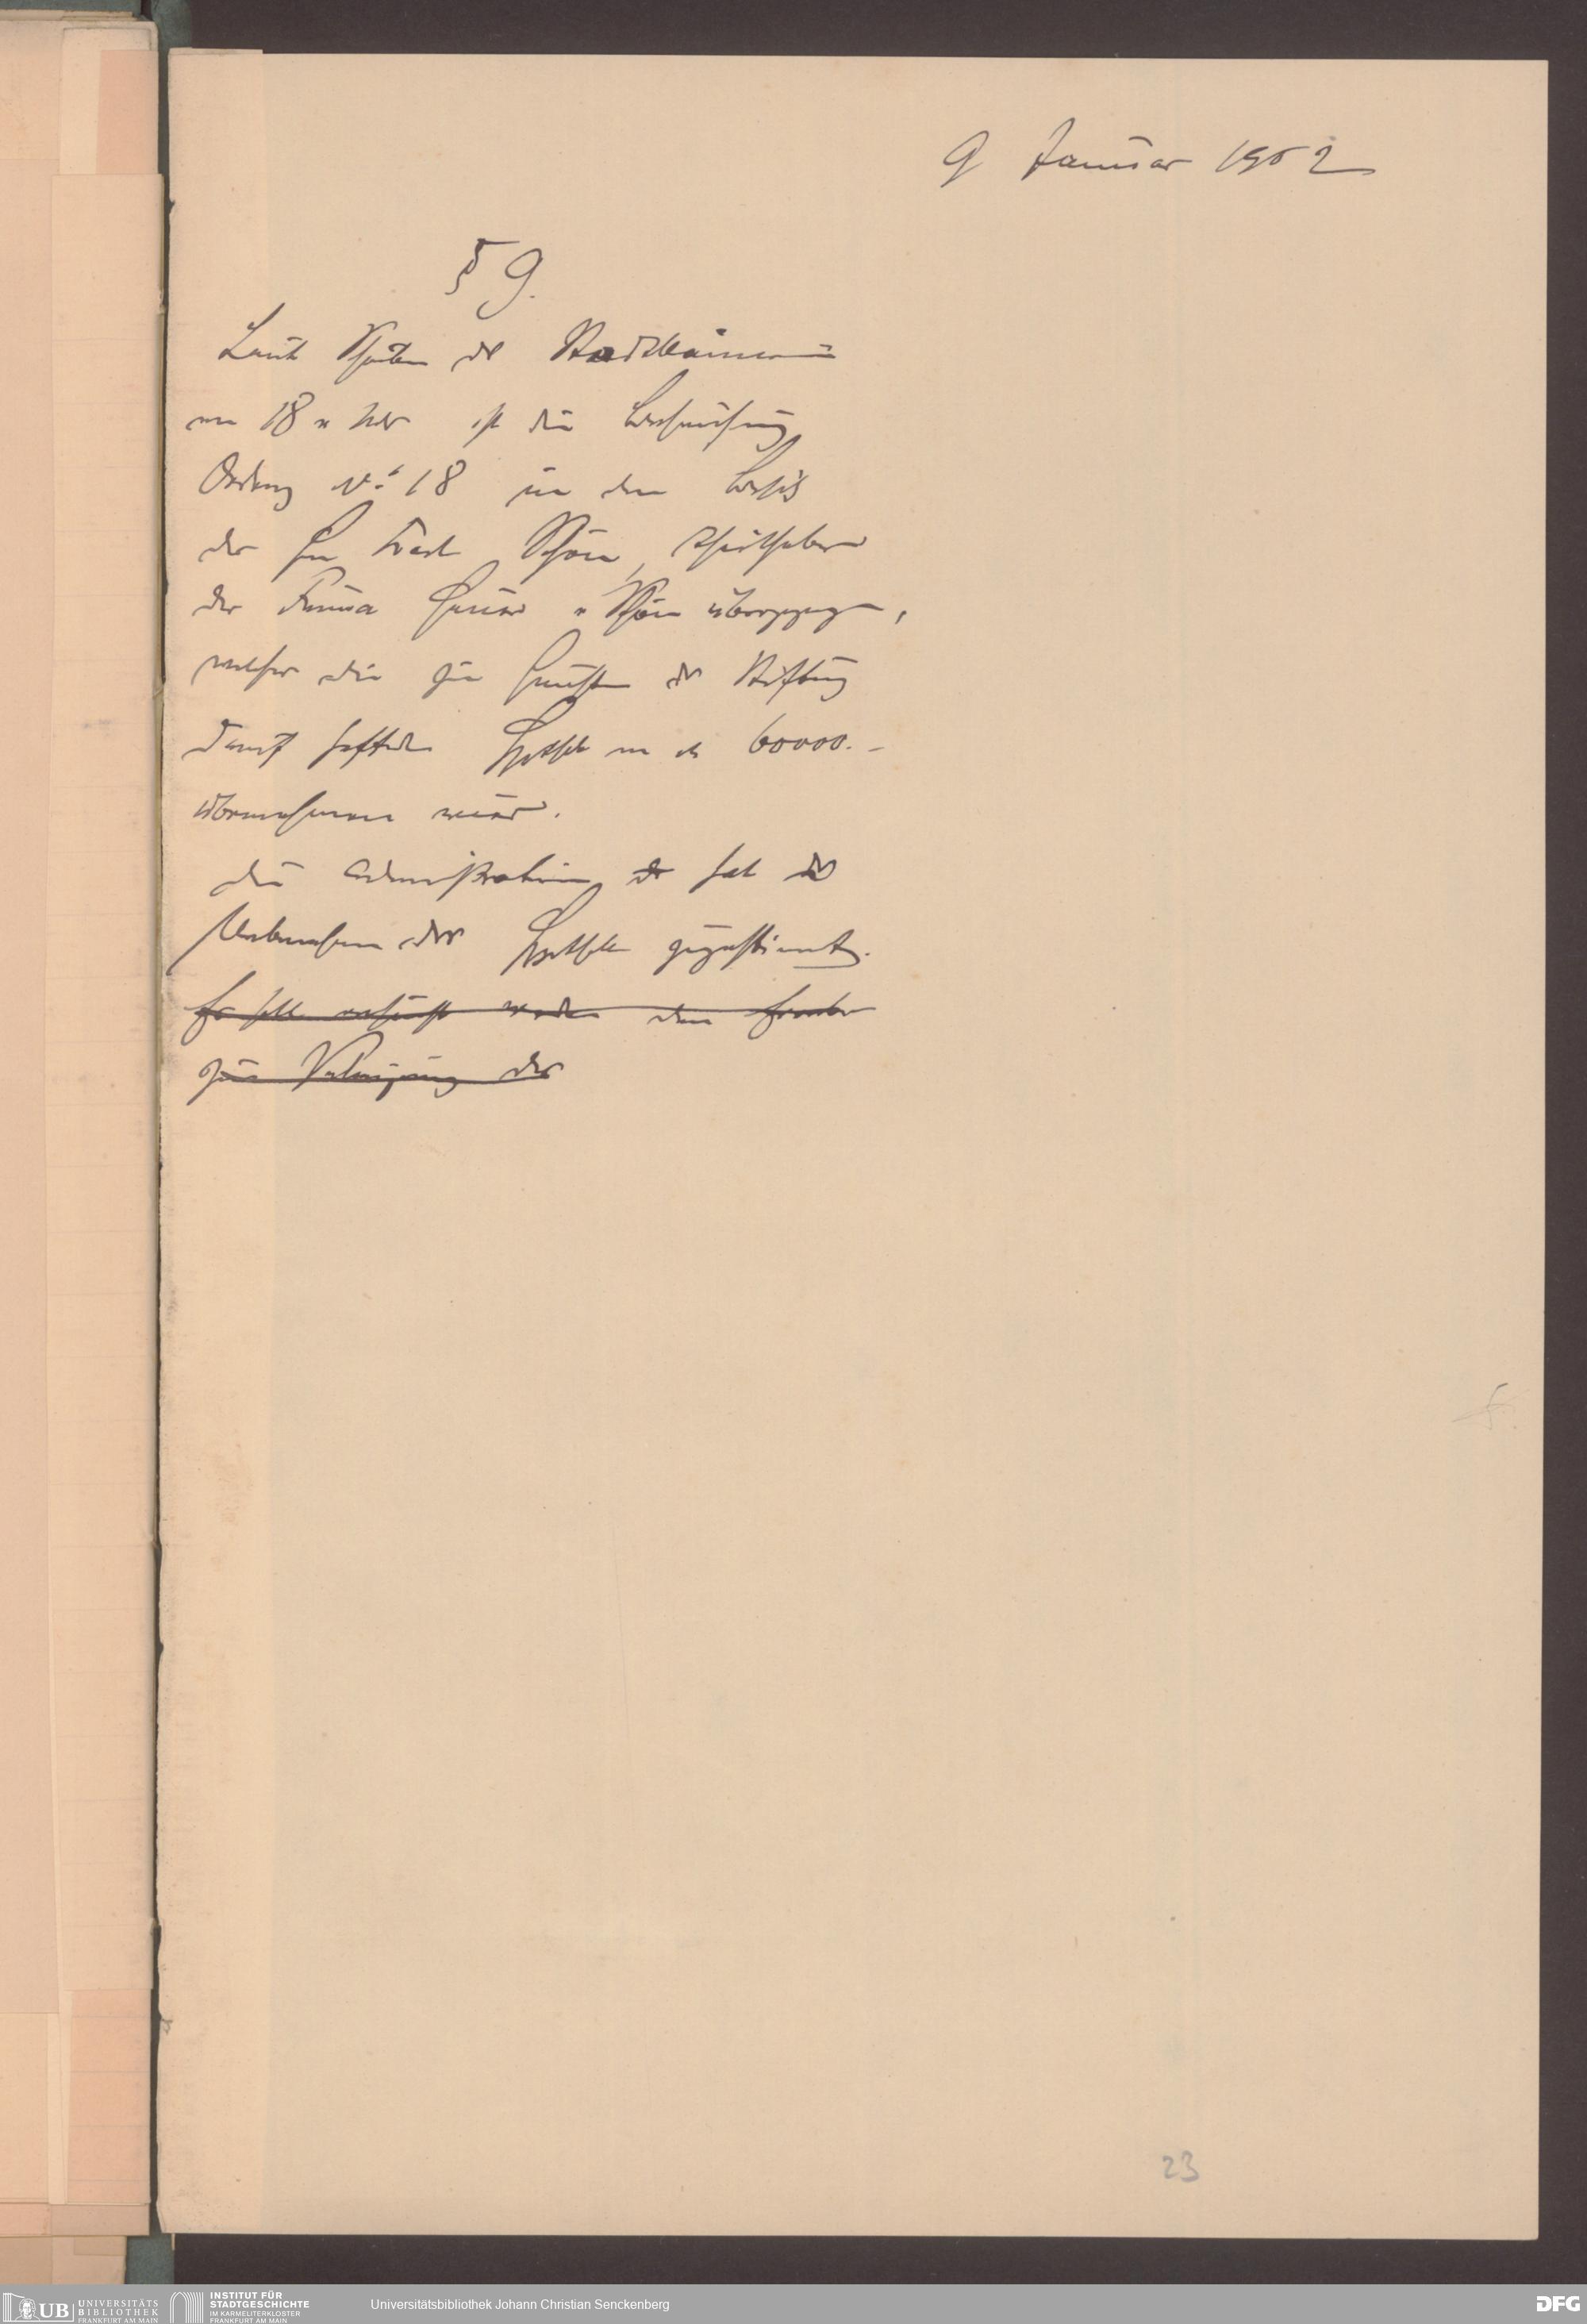 9 Januar 1902
§ 9.
Laut Schreiben der Stadtkämmerei
vom 18 v Mts ist die Liegenschaft
Oederweg No 18 in den Besitz
der Schön, Theilhaber
der Firma & Schön übergegangen,
welcher die zu Gunsten der Stiftung
darauf haftende Hypothek von M 60000.-
übernehmen wird.
Die Administration der hat der
Uebernahme der Hypothek zugestimmt.
Es soll versucht werden den
zur der
23
UB UNIVERSITÄTS
BIBLIOTHEK
FRANKFURT AM MAIN
INSTITUT FÜR
STADTGESCHICHTE
IM KARMELITERKLOSTER
FRANKFURT AM MAIN
Universitätsbibliothek Johann Christian Senckenberg
DFG